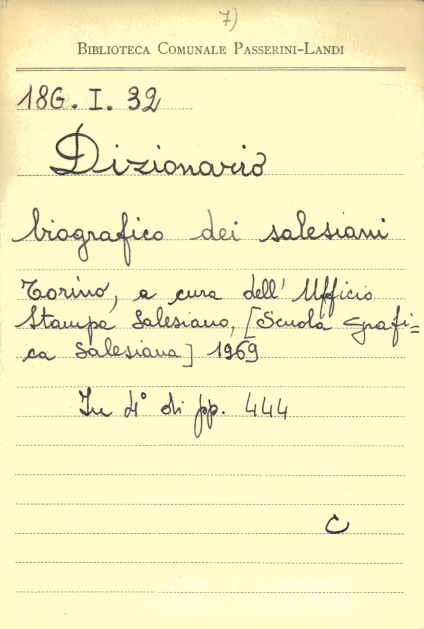 7)
BIBLIOTECA COMUNALE PASSERINI-LANDI
18G. I. 32
Dizionario
biografico dei salesiani
Torino, a cura dell' Ufficio
Stampa Salesiano, [Scuola grafi=
ca Salesiana] 1969
In 4° di pp. 444
C